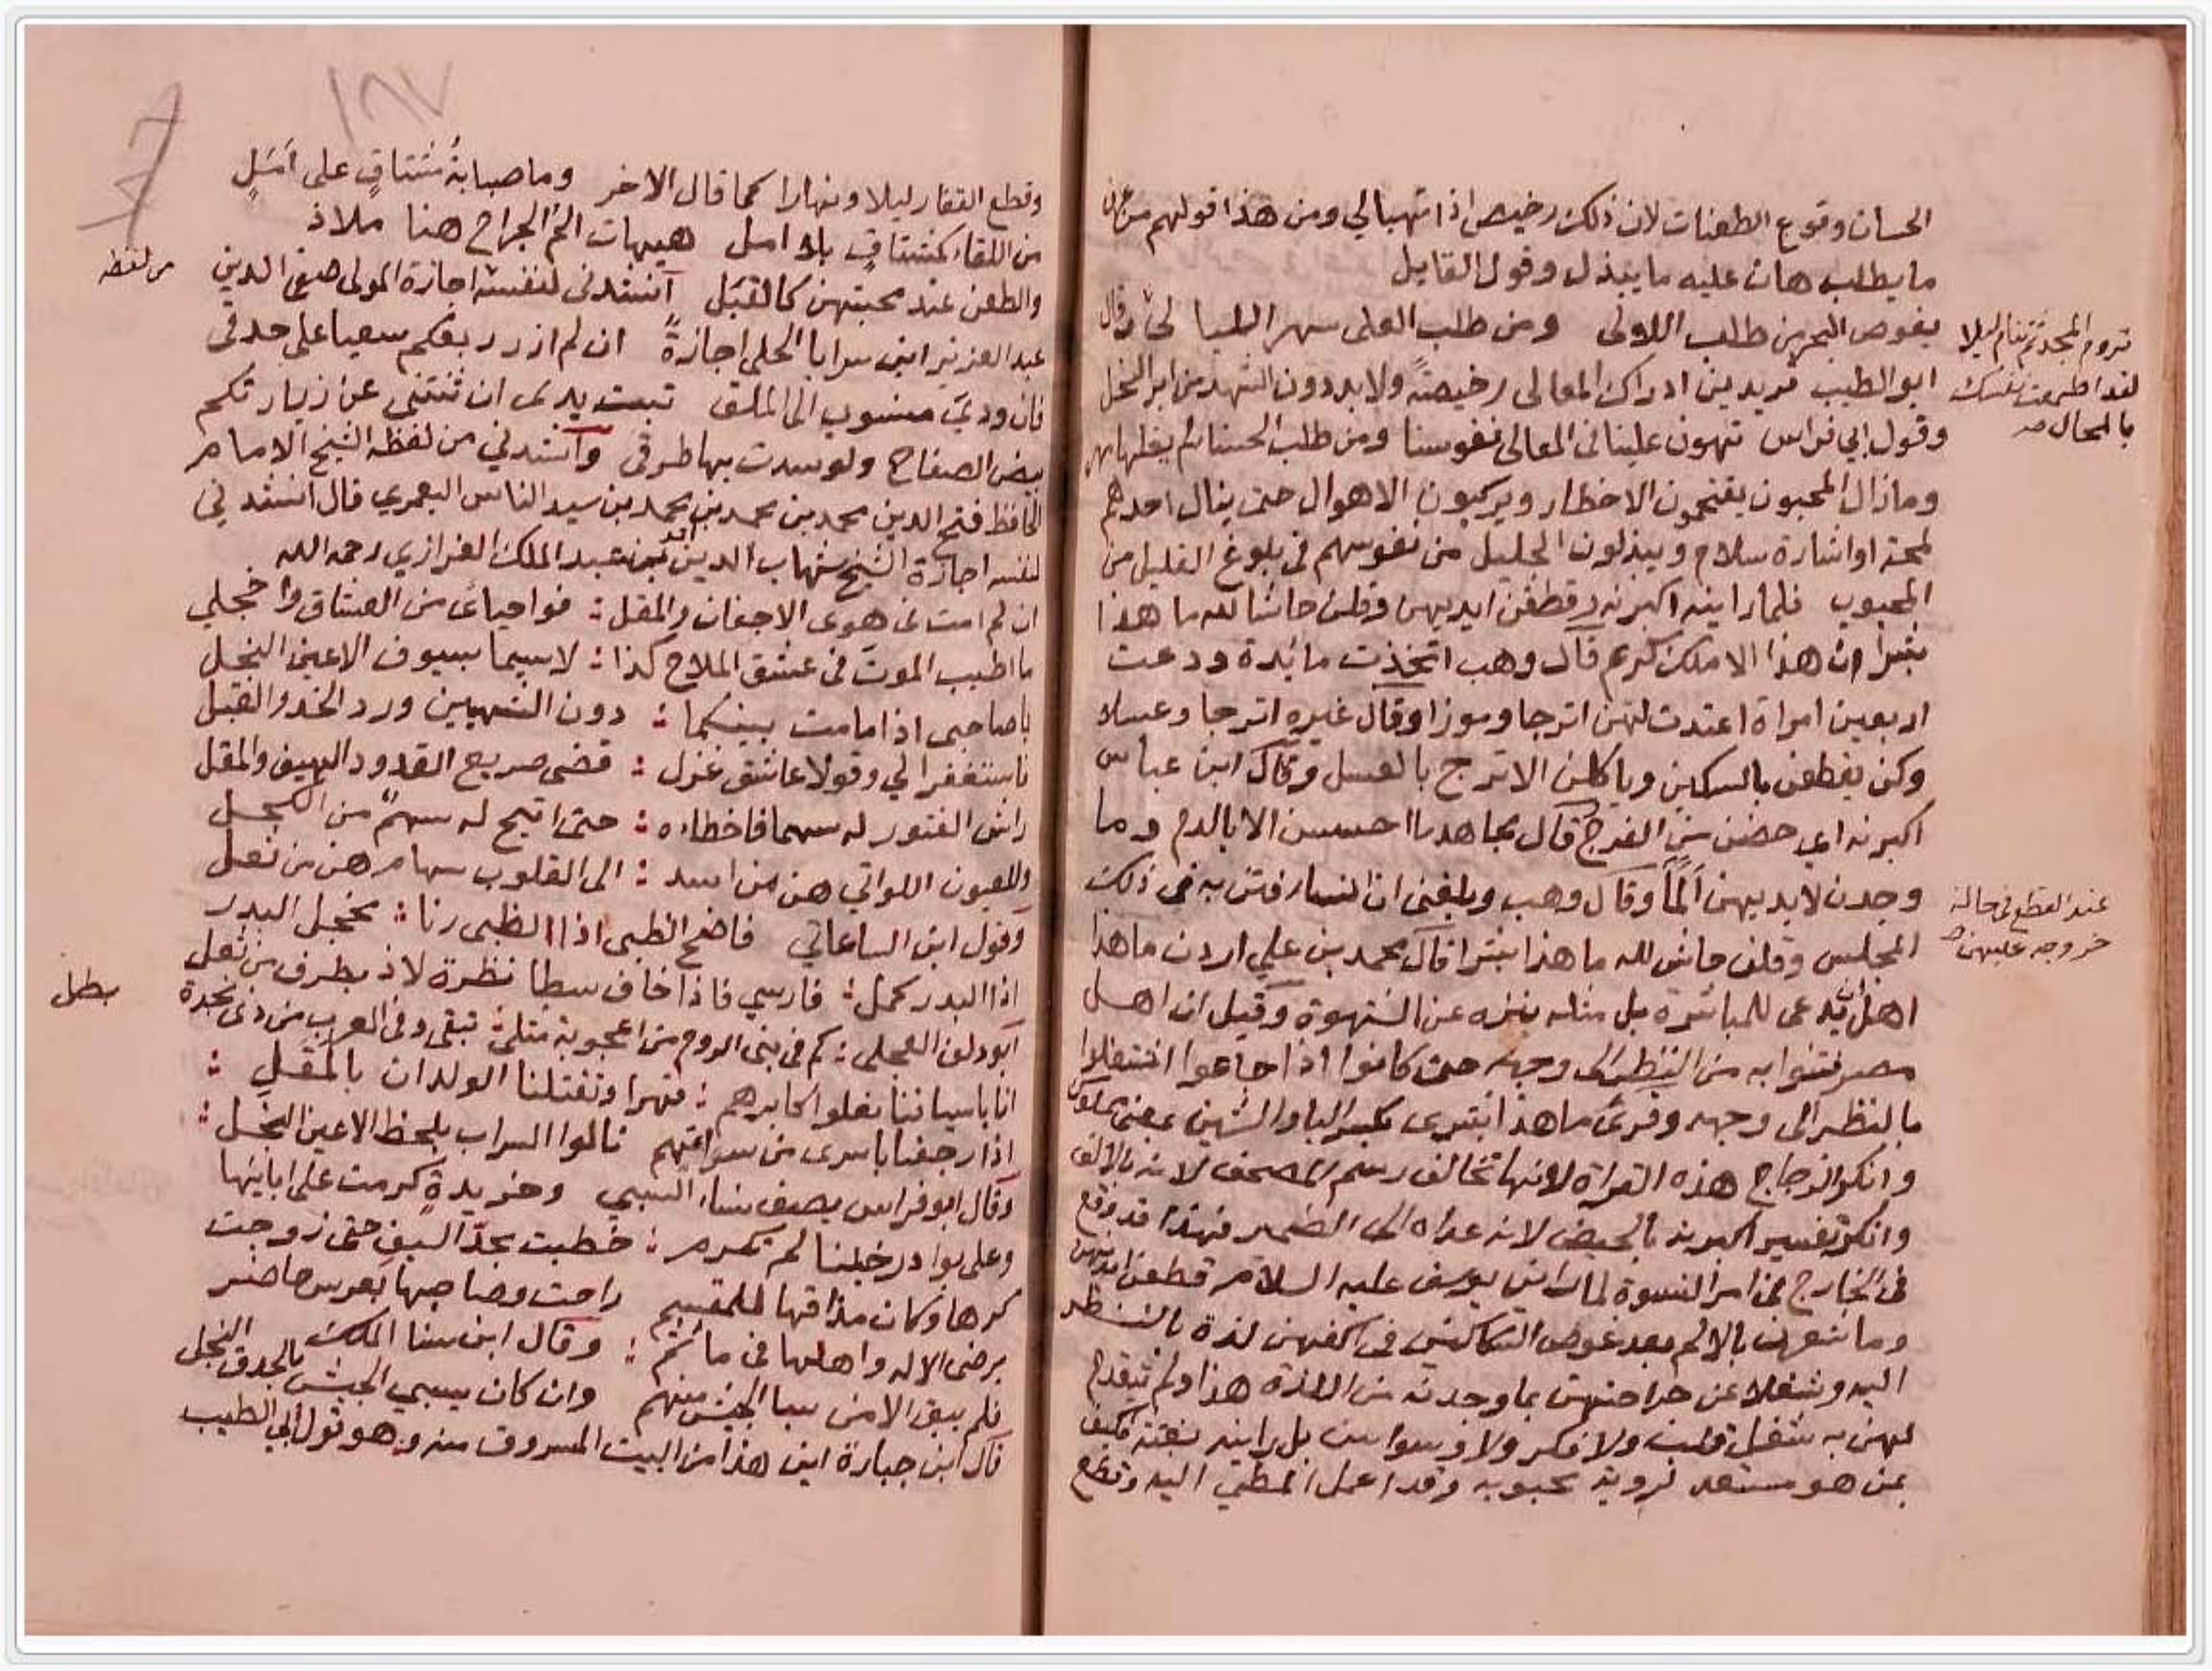 الحسان وقوع الطعنات لان ذلك رخيص اذا تهيالي ومن هذا قولهم من عرف
ما يطلب هان عليه ما يبذل وقول القايل
يغوص البحر من طلب اللالى ومن طلب العلى سهر الليالي وقال
تروم المجد ثم تنام ليلا
لقد اطمعت نفسك
بالمحال صح
ابو الطيب تريدين ادراك المعالى رخيصة ولا بد دون الشهد من ابر النحل
وقول ابي فراس تهون علينا فى المعالى نفوسنا ومن طلب الحسنا لم يغلها مهر
وما زال المحبون يقتحمون الاخطار ويركبون الاهوال حتى ينال احدهم
لمحة او اشارة سلام ويبذلون الجليل من نفوسهم فى بلوغ القليل من
المحبوب فلما راينه اكبرنه وقطعن ايديهن وقلن حاشا لله ما هذا
بشرا ان هذا الا ملك كريم قال وهب اتخذت مائدة ودعت
اربعين امراة اعتدت لهن اترجا وموزا وقال غيره اترجا وعسلا
وكن يقطعن بالسكين وياكلن الاترج بالعسل وقال ابن عباس
اكبرنه اي حضن من الفرح قال مجاهد ما احسسن الا بالدم وما
وجدن لايديهن ألمًا وقال وهب وبلغنى ان تسعا متن به فى ذلك
عند القطع فى حالة
خروجه عليهن صح
المجلس وقلن حاش لله ما هذا بشرا قال محمد بن علي اردن ما هذا
اهل ان يدعى للمباشرة بل مثله ينزه عن الشهوة وقيل ان اهل
مصر فتنوا به من النظر الى وجهه حتى كانوا اذا جاعوا اشتغلوا
بالنظر الى وجهه وقرئ ما هذا بشرى بكسر البا والشين بمعنى مملوك
وانكر الزجاج هذه القراة لانها تخالف رسم المصحف لانه بالالف
وانكر تفسير اكبرنه بالحيض لانه عداه الى الضمير فهذا قد وقع
فى الخارج فى امر النسوة لما راين يوسف عليه السلام قطعن ايديهن
وما شعرن بالالم بعد غوص السكاكين فى اكفهن لذة بالنظر
اليه وشغلا عن جراحتهن بما وجدنه من اللذة هذا ولم تتقدم
لهن به شغل قلب ولا فكر ولا وسواس بل راينه بغتة فكيف
بمن هو مستعد لروية محبوبه وقد اعمل المطي اليه وقطع
١٦٧
وقطع القفار ليلا ونهارا كما قال الاخر وما صبابةُ مشتاقٍ على أمَلٍ
من اللقاء كمشتاقٍ بلا امل هيهات الم الجراح هنا ملاذ
والطعن عند محبتهن كالقبَل أنشدنى لنفسه اجازة المولى صفى الدين
من لفظه
عبد العزيز ابن سرايا الحلى اجازةً ان لم ازر ربعكم سعيا على حدقى
فان ودي منسوب الى الملق تبت يدى ان ثنتنى عن زيارتكم
بيض الصفاح ولو سدت بها طرقى وانشدني من لفظه الشيخ الامام
الحافظ فتح الدين محمد بن محمد بن محمد بن سيد الناس اليعمري قال انشدني
لنفسه اجازة الشيخ شهاب الدين احمد بن عبد الملك العزازي رحمه الله
ان لم امت فى هوى الاجفان والمقل : فواحيائ من العشاق واخجلي
ما اطيب الموت فى عشق الملاح كذا : لاسيما بسيوف الاعين النجل
يا صاحبى اذا ما مت بينكما : دون الشهيين ورد الخد والقبل
فاستغفرا لي وقولا عاشق غزل : قضى صريع القدود الهيف والمقل
راش الفتور له سهما فاخطاه : حتى اتيح له سهمٌ من الكحل
وللعيون اللواتي هن من اسد : الى القلوب سهام هن من ثعل
وقول ابن الساعاتي فاضح الظبى اذا الظبى رنا : مخجل البدر
اذا البدر كمل : فارسي فاذا خاف سطا نظرة لاذ بطرف من ثعل
ابو دلف العجلى : كم فى بنى الروم من اعجوبة مثلى : تبقى وفى العرب من ذى نجدة
بطل
انا باسيافنا نعلو اكابرهم : قهرا وتقتلنا الولدان بالمقل :
اذا رجعنا باسرى من سراتهم نالوا التراب بلحظ الاعين النجل :
وقال ابو فراس يصف نساء السبي وخريدةٍ كرمت على ابائها
وعلى بوادر خيلنا لم تكرم : خطبت بحدّ السيف حتى زوجت
كرها وكان مذاقها للمقسم راحت وصاحبها بعرس حاضر
برضى الاله واهلها فى مأتم : وقال ابن سنا الملك
فلم يبق الا من سبا الجيش منهم وان كان يسبي الجيش بالحدق النجل
قال ابن جبارة ابن هذا من البيت المسروق منه وهو قول ابي الطيب